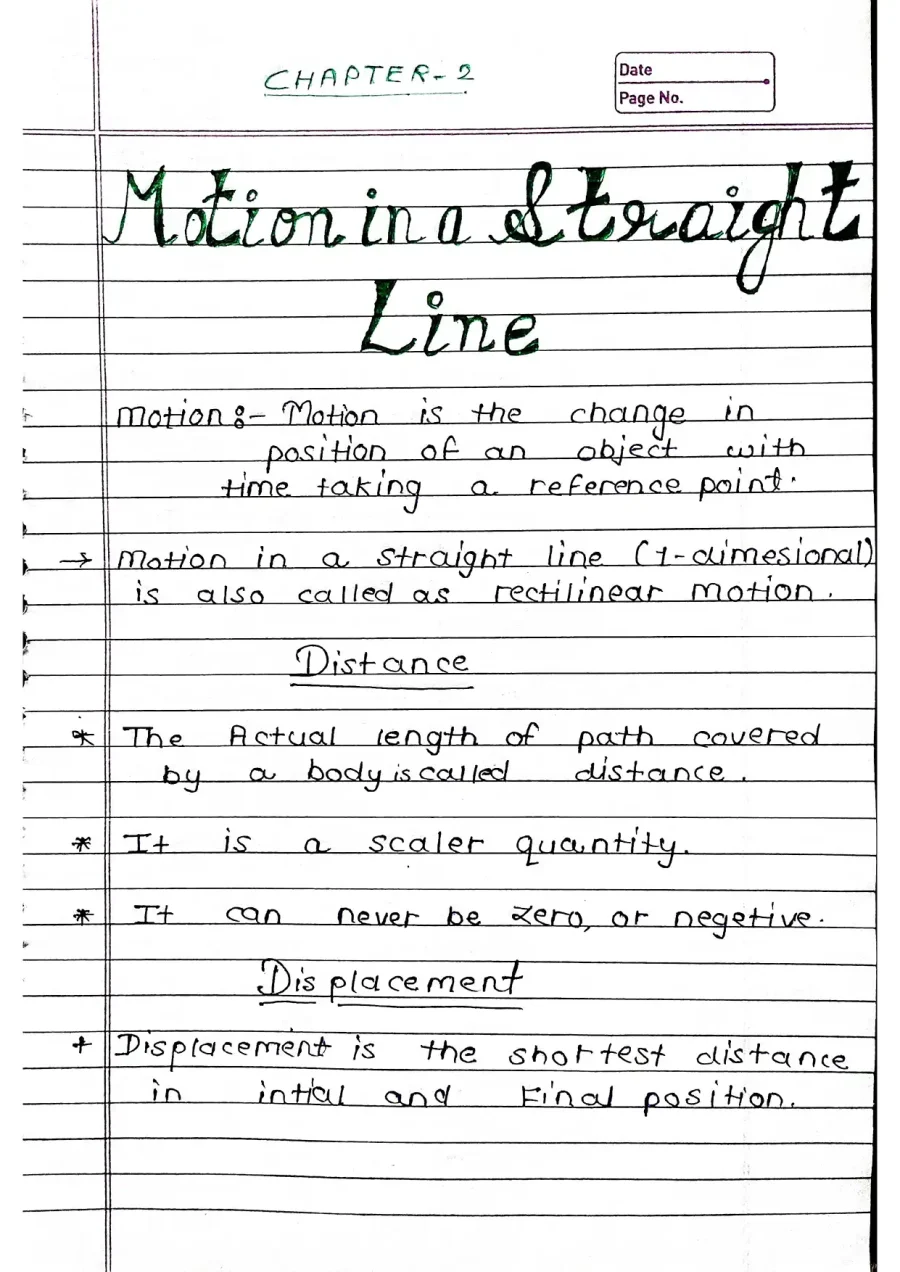 CHAPTER-2
Date
Page No.
Motion in a Straight
Line
Motion :- Motion is the change in
position of an object with
time taking a reference point.
→ Motion in a straight line (1-dimesional)
is also called as rectilinear motion.
Distance
* The Actual length of path covered
by a body is called distance.
* It is a scaler quantity.
* It can never be zero, or negetive.
Displacement
+ Displacement is the shortest distance
in intial and Final position.